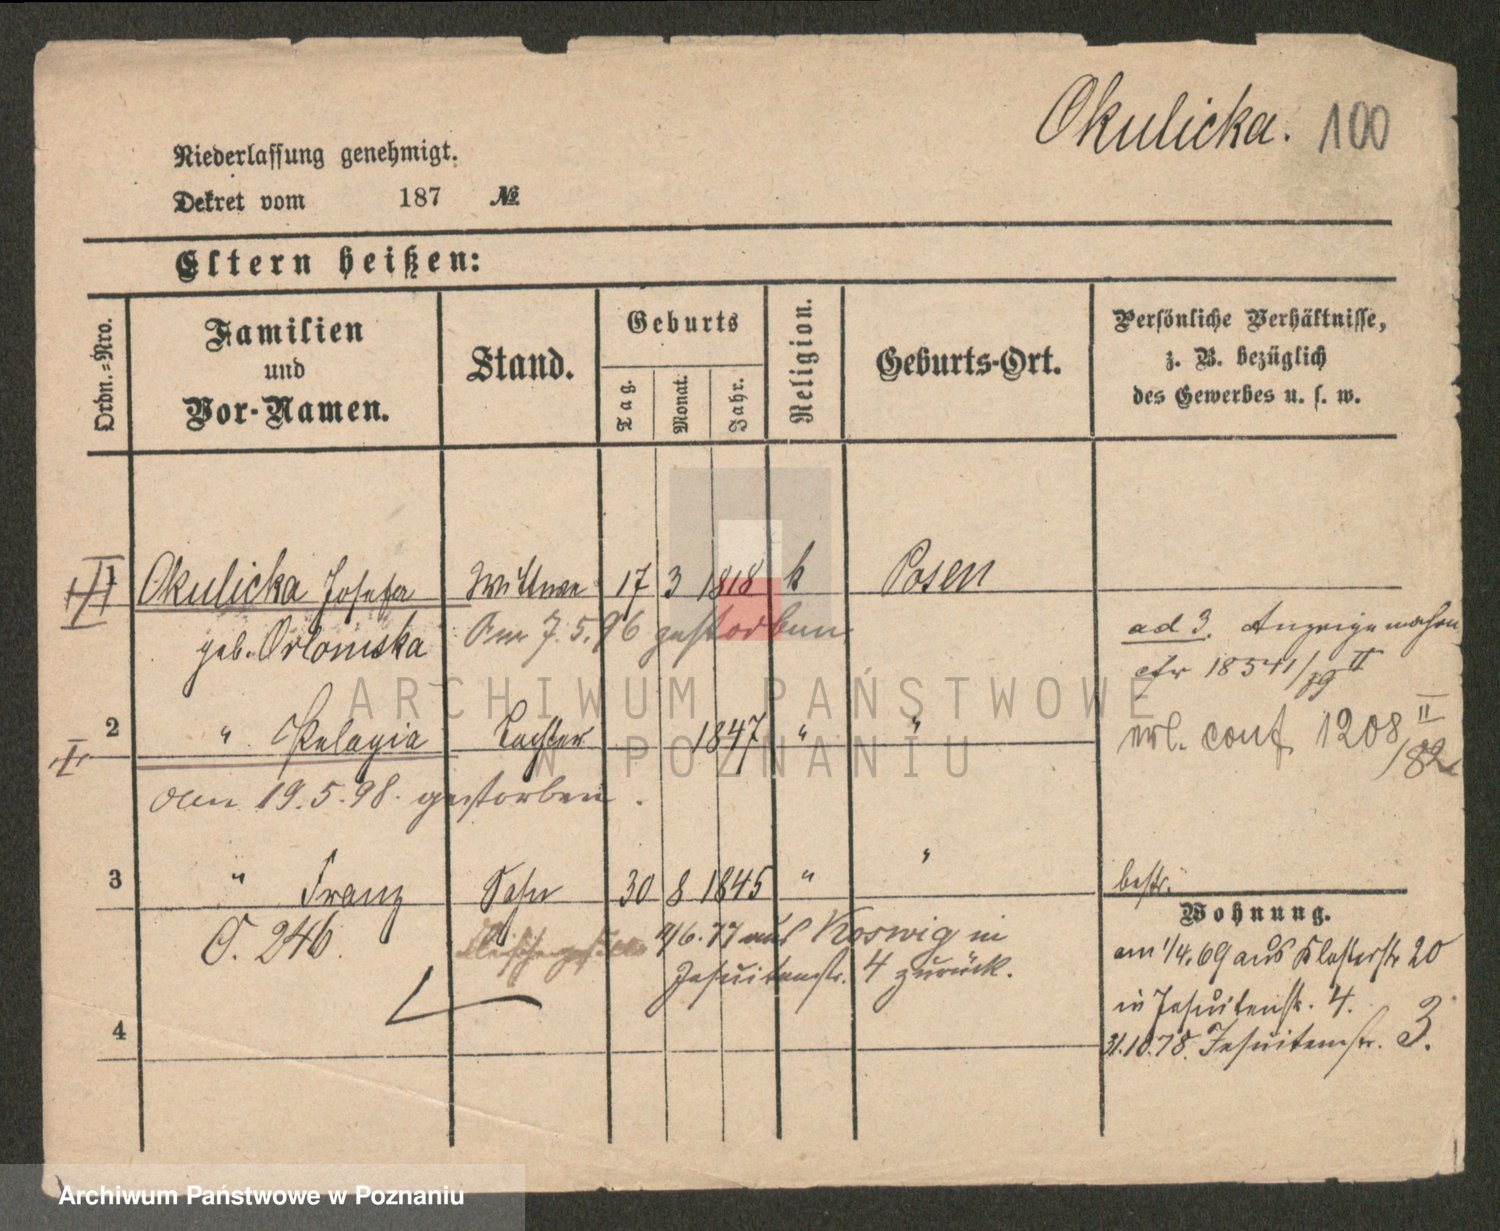 Okulicka. 100
Niederlassung genehmigt.
Dekret vom 187 №
Eltern heißen:
Ordn.-Nro.
Familien
und
Vor-Namen.
Stand.
Geburts
Tag.
Monat.
Jahr.
Religion.
Geburts-Ort.
Persönliche Verhältnisse,
z. B. bezüglich
des Gewerbes u. s. w.
1 Okulicka Josefa Wittwe 17 3 1818 k Posen
geb. Orlonska Am 7.5.96 gestorben
ad 3.
cfr 18541/79 II
2 " Pelagia Tochter 1847 " "
I
erl. conf. 1208 II/82
am 19.5.98. gestorben.
3 " Franz Sohn 30 8 1845 " "
bestr.
O. 246. 4/6.77 aus Koswig in
Jesuitenstr. 4 zurück.
Wohnung.
am 1/4.69 aus Klosterstr 20
in Jesuitenstr. 4.
31.10.78. Jesuitenstr. 3.
4
ARCHIWUM PAŃSTWOWE
W POZNANIU
Archiwum Państwowe w Poznaniu